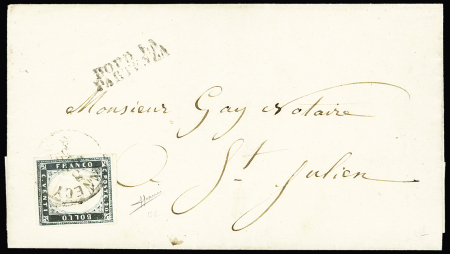 DOPO LA
PARTENZA
Monsieur Gay Notaire
à St. Julien
FRANCO
BOLLO